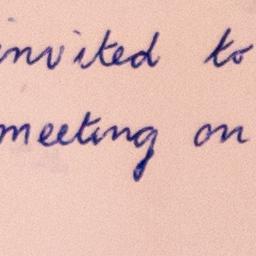 invited to
meeting on